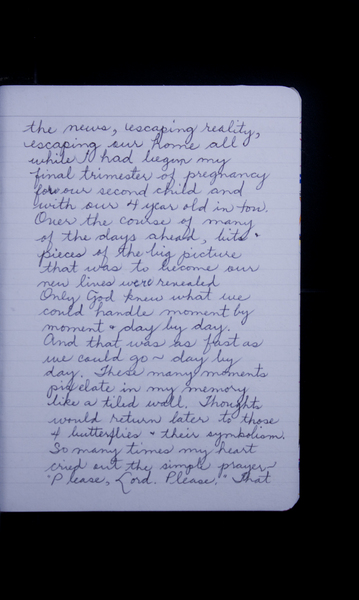 the news, escaping reality,
escaping our home all
while I had begun my
final trimester of pregnancy
for our second child and
with our 4 year old in tow.
Over the course of many
of the days ahead, bits +
pieces of the big picture
that was to become our
new lives were revealed
Only God knew what we
could handle moment by
moment + day by day.
And that was as fast as
we could go ~ day by
day. These many moments
pixelate in my memory
like a tiled wall. Thoughts
would return later to those
4 butterflies + their symbolism.
So many times my heart
cried out the simple prayer
"Please, Lord. Please." That